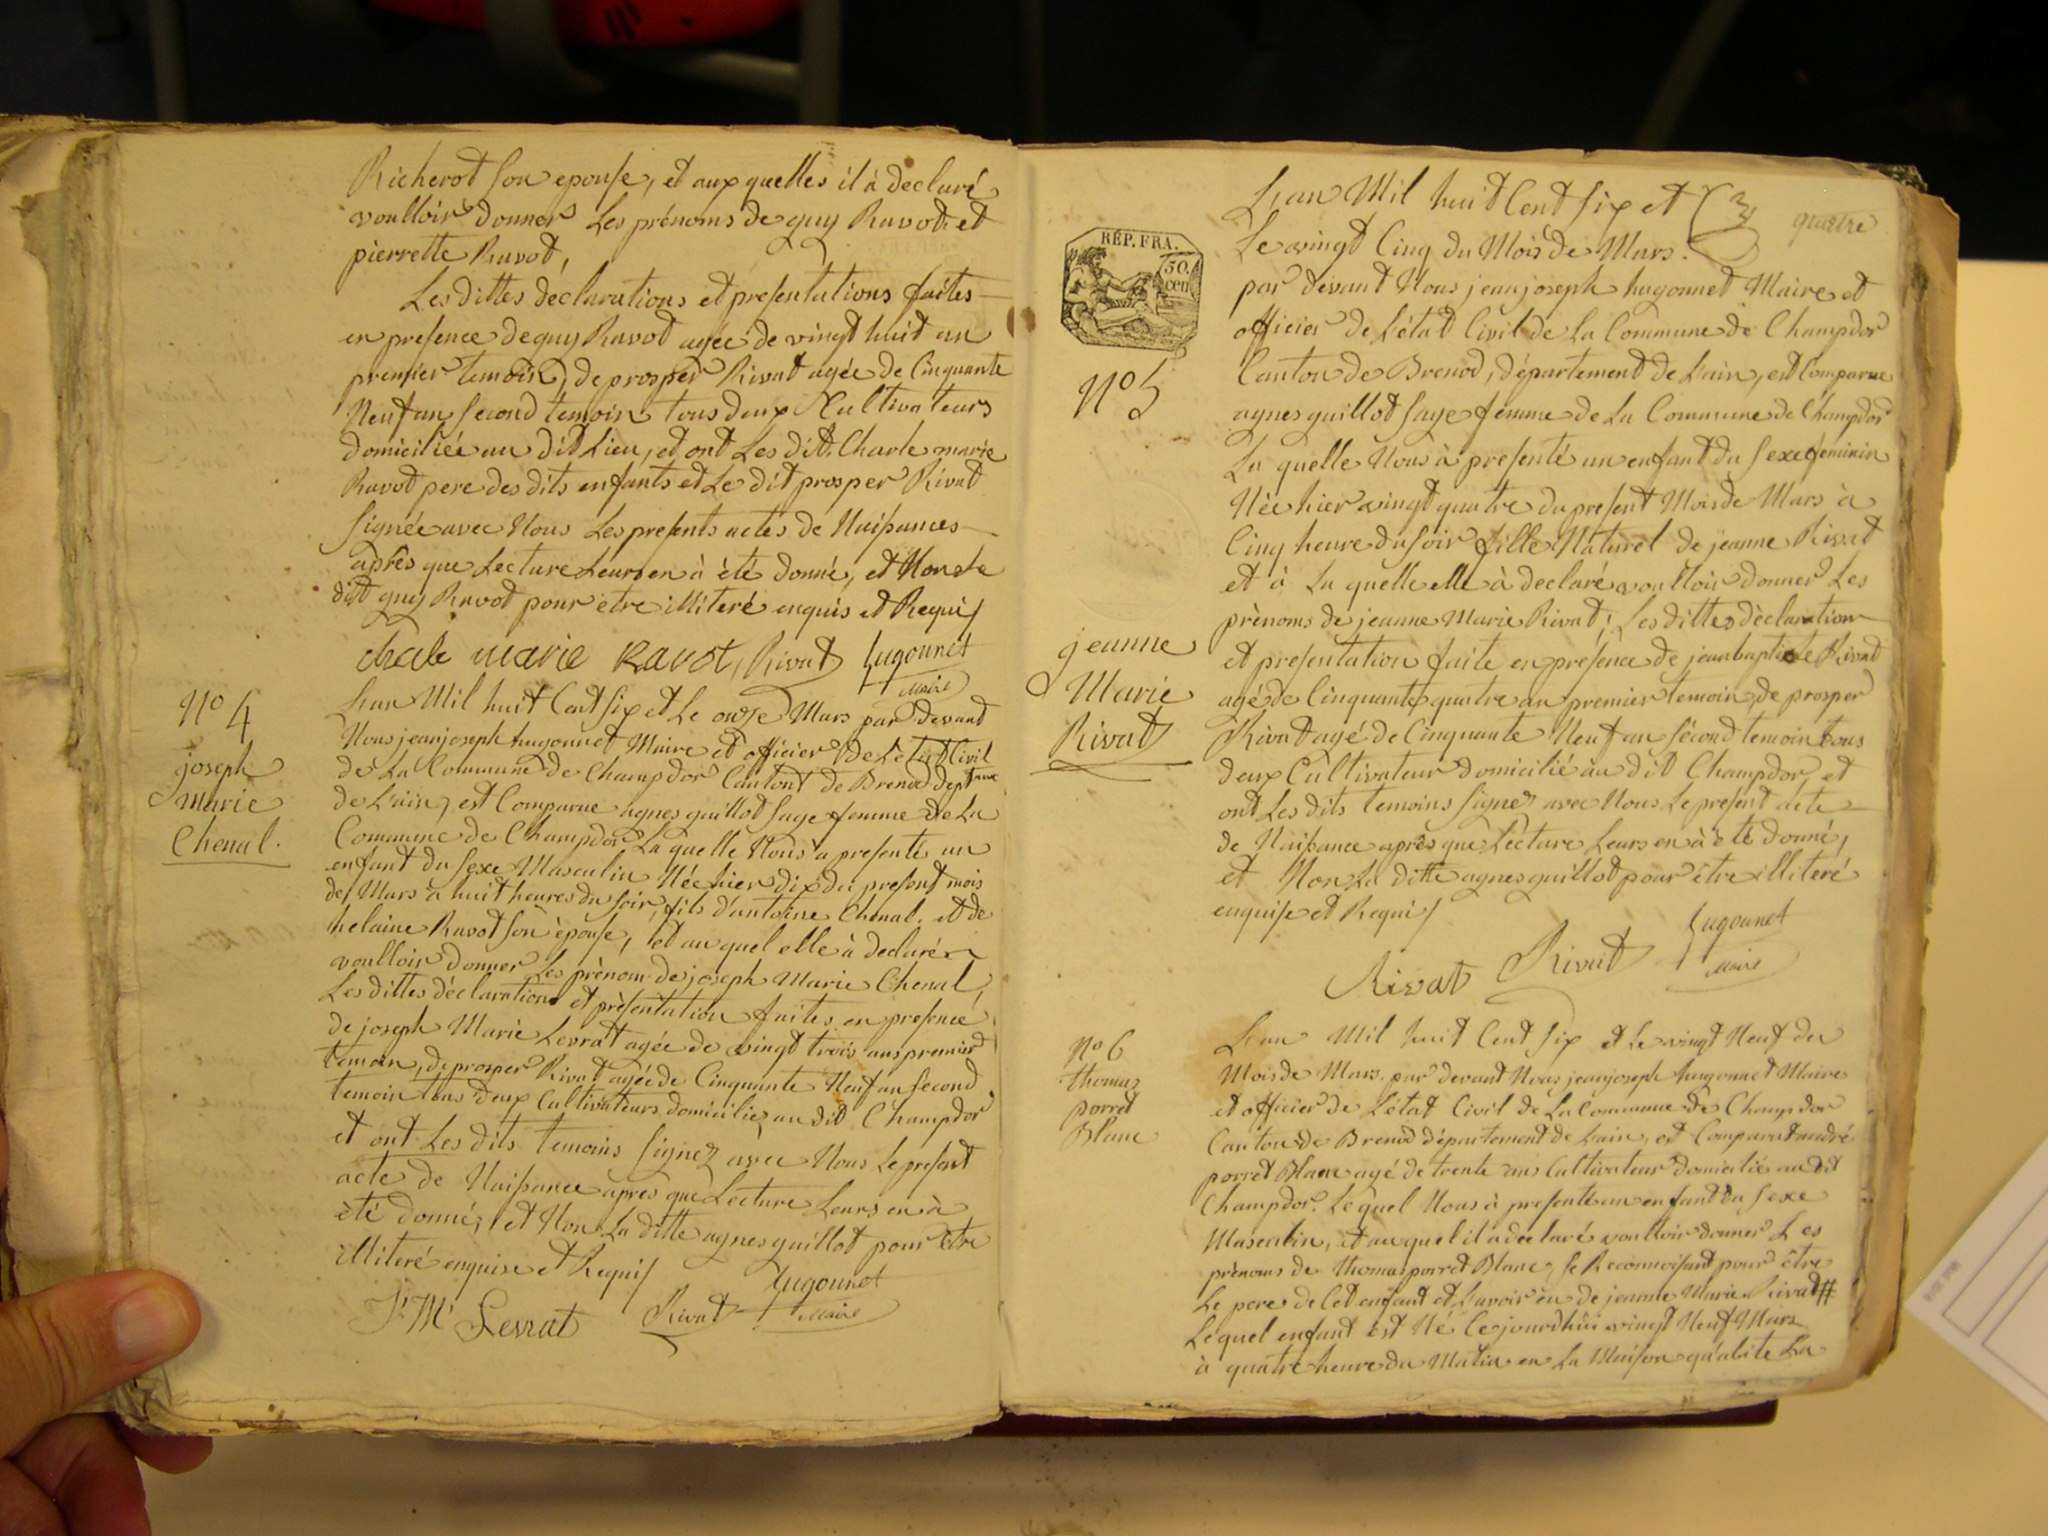 Richerot son epouse, et aux quelles il à declaré
voulloir donner Les prénoms de guy Ravot et
pierrette Ravot,
Les dittes déclarations et presentations faites
en presence de guy Ravot agée de vingt huit an
premier temoin, de prosper Rivat agée de Cinquante
Neuf an second temoin tous deux Cultivateurs
domiciliée au dit Lieu, et ont Les dit Charle marie
Ravot pere des dits enfants et Le dit prosper Rivat
signée avec Nous Les presents actes de Naissances
après que Lecture Leurs en à été donné, et Non Le
dit guy Ravot pour être illiteré enquis et Requis
charle marie Ravot, Rivat hugonnet
Maire
N° 4
joseph
Marie
Chenal.
Lan Mil huit Cent six et Le onze Mars par devant
Nous jean joseph hugonnet Maire et officier de L'état Civil
de La Commune de Champdor Cantont de Brenod dept
de L'ain, est Comparue agnes guillot sage femme de La
Commune de Champdor La quelle Nous a presenté un
enfant du sexe Masculin Née hier dix du present mois
de Mars à huit heures du soir, fils d'antoine Chenal. et de
helaine Ravot son épouse, et au quel elle à declaré
voulloir donner Les prènom de joseph Marie Chenal,
Les dittes déclarations et présentation faites en presence
de joseph Marie Levrat agée de vingt trois ans premier
temoin, de prosper Rivat agée de Cinquante Neuf an second
temoin tous deux Cultivateurs domiciliez au dit Champdor
et ont Les dits temoins signez avec Nous Le present
acte de Naissance apres que Lecture Leurs en à
été donné, et Non La ditte agnes guillot pour être
illiteré enquise et Requis
J. M. Levrat Rivat hugonnet
Maire
quatre
RÉP. FRA.
50.
cen.
N° 5
jeanne
Marie
Rivat
Lan Mil huit Cent six et
Le vingt Cinq du Mois de Mars.
par devant Nous jean joseph hugonnet Maire et
officier de L'état Civil de La Commune de Champdor
Canton de Brenod, département de L'ain, est Comparue
agnes guillot sage femme de La Commune de Champdor
La quelle Nous à presenté un enfant du sexe feminin
Née hier vingt quatre du present Mois de Mars à
Cinq heure du soir fille Naturel de jeanne Rivat
et à La quelle elle à declaré voulloir donner Les
prènoms de jeanne Marie Rivat; Les dittes dèclaration
et presentation faite en presence de jean baptiste Rivat
agé de Cinquante quatre an premier temoin de prosper
Rivat agé de Cinquante Neuf an sécond temoin tous
deux Cultivateur domicilié au dit Champdor, et
ont Les dits temoins signez avec Nous Le present acte
de Naissance après que Lecture Leurs en à été donné,
et Non La ditte agnes guillot pour être illiteré
enquise et Requis
Rivat Rivat hugonnet
Maire
N° 6
thomas
porret
Blanc
Lan Mil huit Cent six et Le vingt Neuf du
Mois de Mars. par devant Nous jean joseph hugonnet Maire
et officier de L'état Civil de La Commune de Champdor
Canton de Brenod département de L'ain, est Comparut andré
porret Blanc agé de trente ans Cultivateur domicilié au dit
Champdor. Le quel Nous à presenté un enfant du sexe
Masculin, et au quel il a declaré voulloir donner Les
prènoms de thomas porret Blanc, se Reconnoissant pour être
Le pere de Cet enfant et L'avoir eu de jeanne Marie Rivat #
Le quel enfant est Né Ce jourd'hui vingt Neuf Mars
à quatre heure du Matin en La Maison qu'abite La